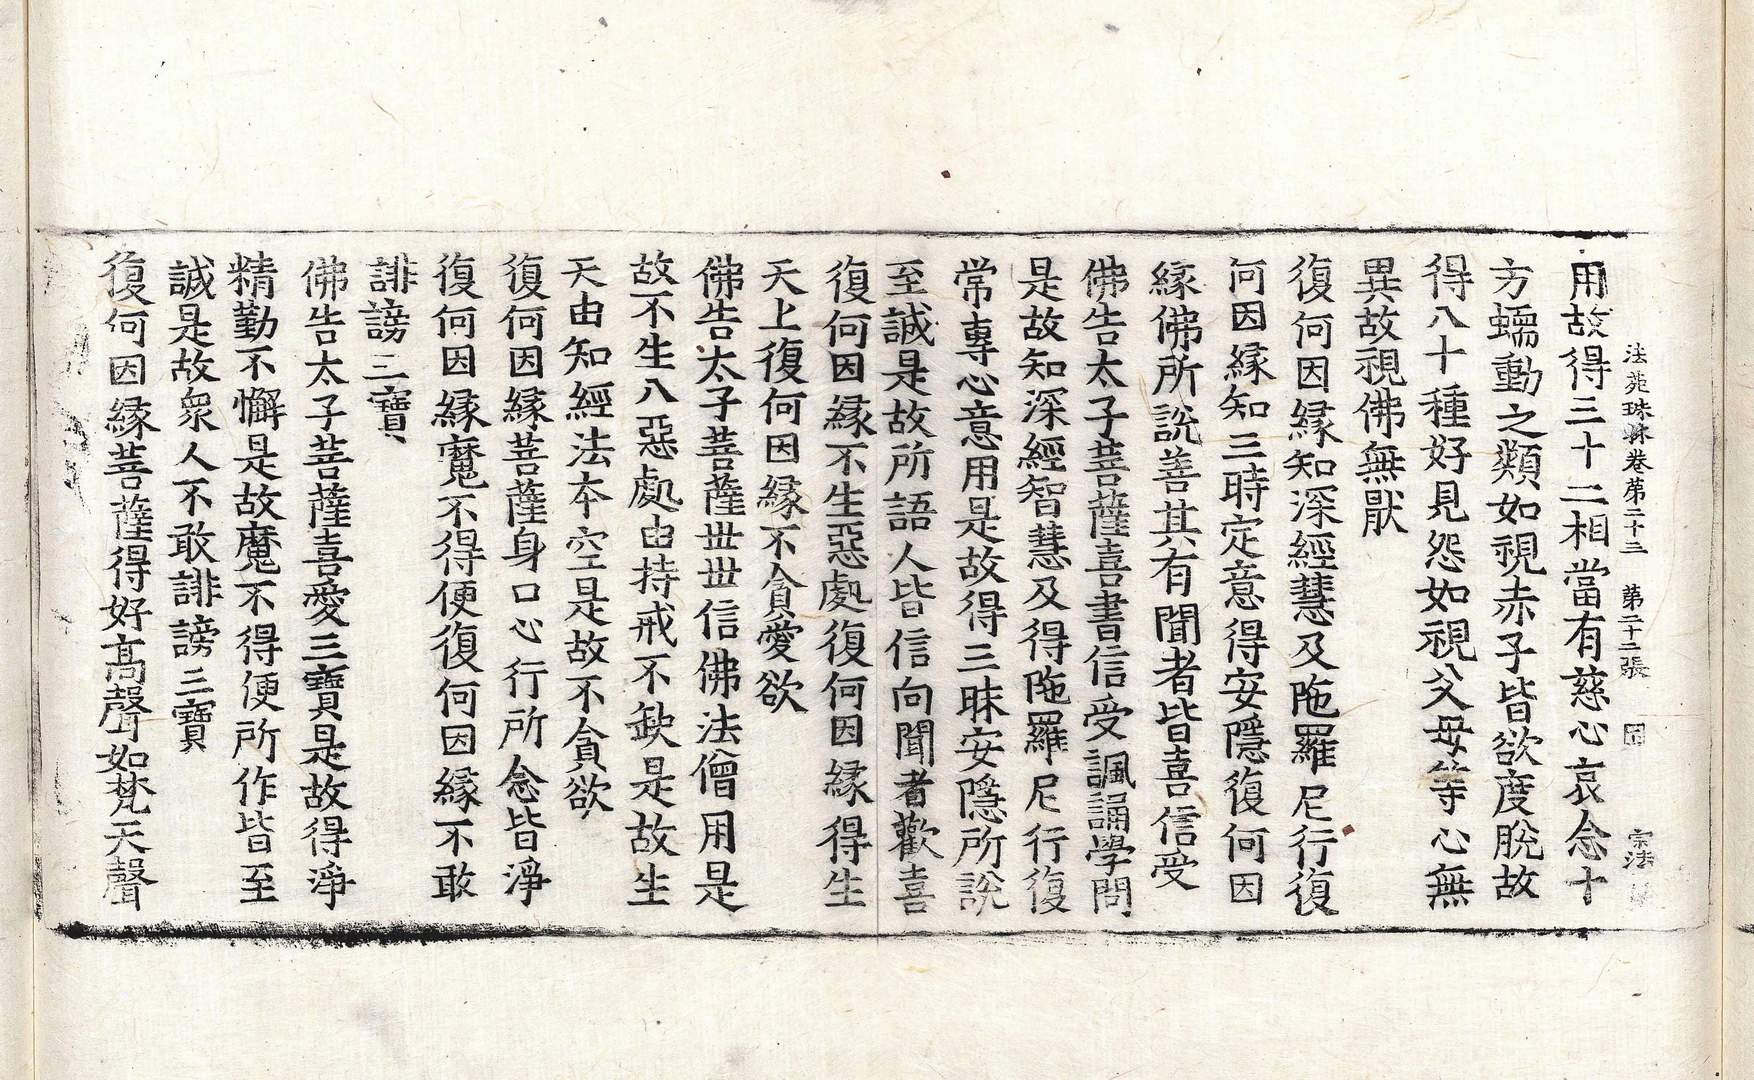 法苑珠林卷第二十三 第二十二張 宗法
用故得三十二相當有慈心哀念十
方蠕動之類如視赤子皆欲度脫故
得八十種好見怨如視父母等心無
異故視佛無猒
復何因緣知深經慧及陁羅尼行復
何因緣知三時定意得安隱復何因
緣佛所說善其有聞者皆喜信受
佛告太子菩薩喜書信受諷誦學問
是故知深經智慧及得陁羅尼行復
常專心意用是故得三昧安隱所說
至誠是故所語人皆信向聞者歡喜
復何因緣不生惡處復何因緣得生
天上復何因緣不貪愛欲
佛告太子菩薩世世信佛法僧用是
故不生八惡處由持戒不缺是故生
天由知經法本空是故不貪欲
復何因緣菩薩身口心行所念皆淨
復何因緣魔不得便復何因緣不敢
誹謗三寶
佛告太子菩薩喜愛三寶是故得淨
精勤不懈是故魔不得便所作皆至
誠是故衆人不敢誹謗三寶
復何因緣菩薩得好高聲如梵天聲